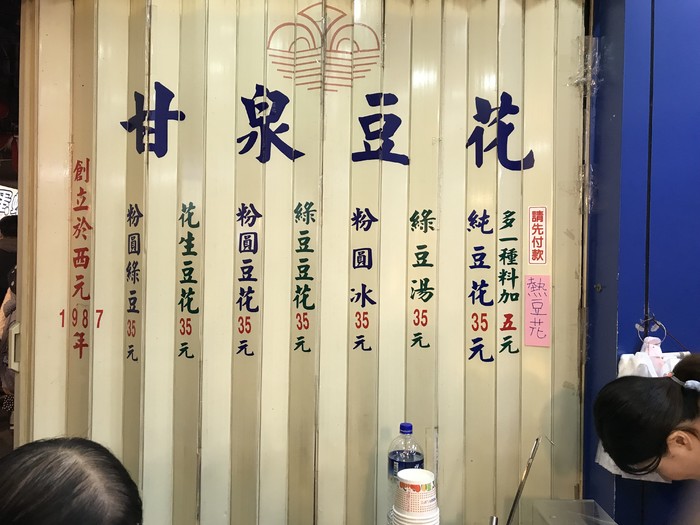 甘泉豆花
請先付款
熱豆花
多一種料加五元
純豆花35元
綠豆湯35元
粉圓冰35元
綠豆豆花35元
粉圓豆花35元
花生豆花35元
粉圓綠豆35元
創立於西元1987年